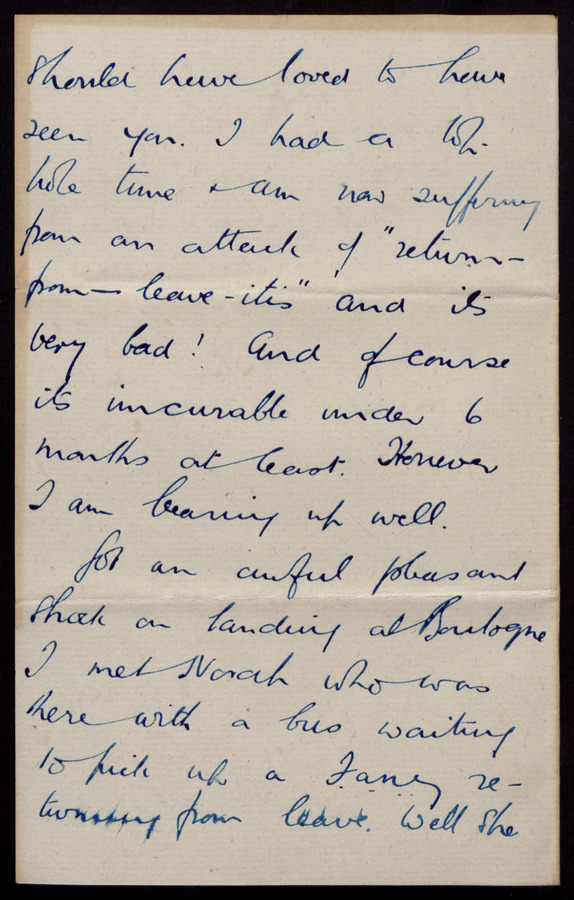 should have loved to have
seen you. I had a top-
hole time & am now suffering
from an attack of "return-
from-leave-itis" and its
very bad! And of course
its incurable under 6
months at least. However
I am bearing up well.
Got an awful pleasant
shock on landing at Boulogne
I met Norah who was
there with a bus waiting
to pick up a Fanny re-
turning from leave. Well she